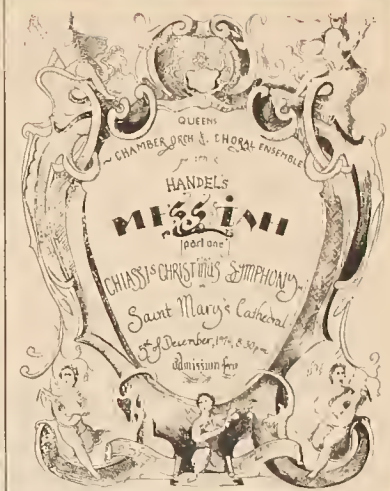 QUEENS
CHAMBER ORCH & CHORAL ENSEMBLE
HANDEL'S
MESSIAH
[part one]
CHIASSI'S CHRISTMAS SYMPHONY
Saint Mary's Cathedral
5th of December, 8:30 pm
admission free